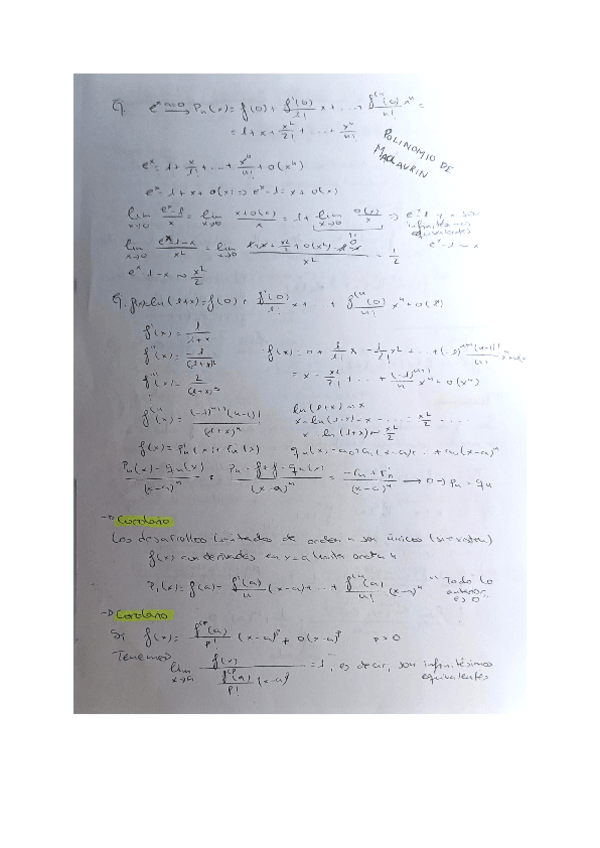 Ej. e^x x=0 → P_n(x) = f(0) + f'(0)/1! x + ... + f^(n)(0)/n! x^n =
= 1 + x + x²/2! + ... + x^n/n!
POLINOMIO DE
MACLAURIN
e^x = 1 + x/1! + ... + x^n/n! + o(x^n)
e^x = 1 + x + o(x) ⇒ e^x - 1 = x + o(x)
lim x→0 (e^x - 1)/x = lim x→0 (x + o(x))/x = 1 + lim x→0 o(x)/x ⇒ e^x - 1 y x son
infinitésimos
equivalentes
e^x - 1 ~ x
lim x→0 (e^x - 1 - x)/x² = lim x→0 (1 + x + x²/2 + o(x²) - 1 - x)/x² = 1/2
e^x - 1 - x ~ x²/2
Ej. f(x) = ln(1+x) = f(0) + f'(0)/1! x + ... + f^(n)(0)/n! x^n + o(x^n)
f'(x) = 1/(1+x)
f''(x) = -1/(1+x)²
f'''(x) = 2/(1+x)³
⋮
f^(n)(x) = (-1)^(n+1) (n-1)!/(1+x)^n
= x - x²/2! + ... + (-1)^(n+1)/n x^n + o(x^n)
ln(1+x) ~ x
x - ln(1+x) ~ x²/2
f(x) = P_n(x) + r_n(x)
(P_n(x) - q_n(x))/(x-a)^n = (P_n - f + f - q_n(x))/(x-a)^n = (-r_n + r_n)/(x-a)^n → 0 → P_n = q_n
→ Corolario
Los desarrollos limitados de orden n son únicos (si existen)
f(x) con derivadas en x=a hasta orden n
P_n(x) = f(a) - f'(a)/1! (x-a) + ... + f^(n)(a)/n! (x-a)^n "Todo lo
anterior
es 0"
→ Corolario
Si f(x) = f^(p)(a)/p! (x-a)^p + o(x-a)^p p>0
Tenemos
lim x→a f(x)/(f^(p)(a)/p! (x-a)^p) = 1, es decir, son infinitésimos
equivalentes